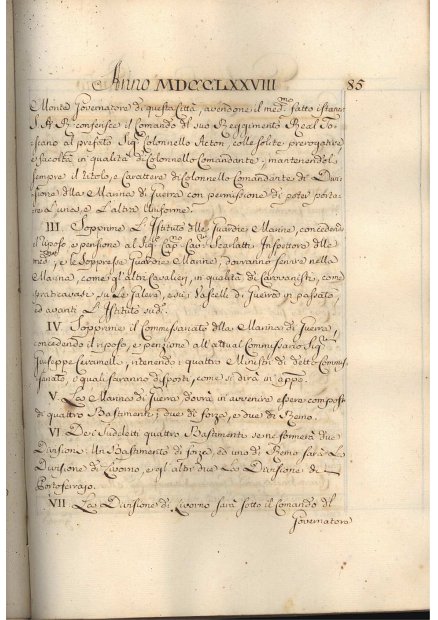 Anno MDCCLXXVIII 85
Monte Governatore di questa Città, avendone il med.mo fatto istanza
S. A. R. conferisce il Comando del suo Reggimento Real To=
scano al prefato Sig.r Colonnello Acton, colle solite prerogative
e facoltà in qualità di Colonnello Comandante; mantenendoli
sempre il titolo, e Carattere di Colonnello Comandante di Divi=
sione della Marina di Guerra con permissione di poter porta=
re l'una, e l'altra Uniforme.
III Sopprime l'Istituto delle Guardie Marine, concedendo
il riposo, e pensione al Sig.r Cap.no Cav.r Scarlatti Inspettore delle
med.me, e le soppresse Guardie Marine, dovranno servire nella
Marina, come gl'altri Cavalieri, in qualità di Carovanisti, come
praticavasi su le Galere, e su i Vascelli di Guerra in passato,
ed avanti l'Istituto sud.o
IV Sopprime il Commissariato della Marina di Guerra,
concedendo il riposo, e pensione all'attual Commissario Sig.r
Giuseppe Ceramelli, ritenendo i quattro Ministri di detto Commis=
sariato, i quali saranno disposti, come si dirà in app.o
V. La Marina di Guerra dovrà in avvenire essere composta
di quattro Bastimenti; due di forza, e due di Remo.
VI Dei sudetti quattro Bastimenti se ne formerà due
Divisioni. Un Bastimento di forza, ed uno di Remo sarà la
Divisione di Livorno, e gl'altri due la Divisione di
Portoferrajo.
VII La Divisione di Livorno sarà sotto il Comando del
Governatore